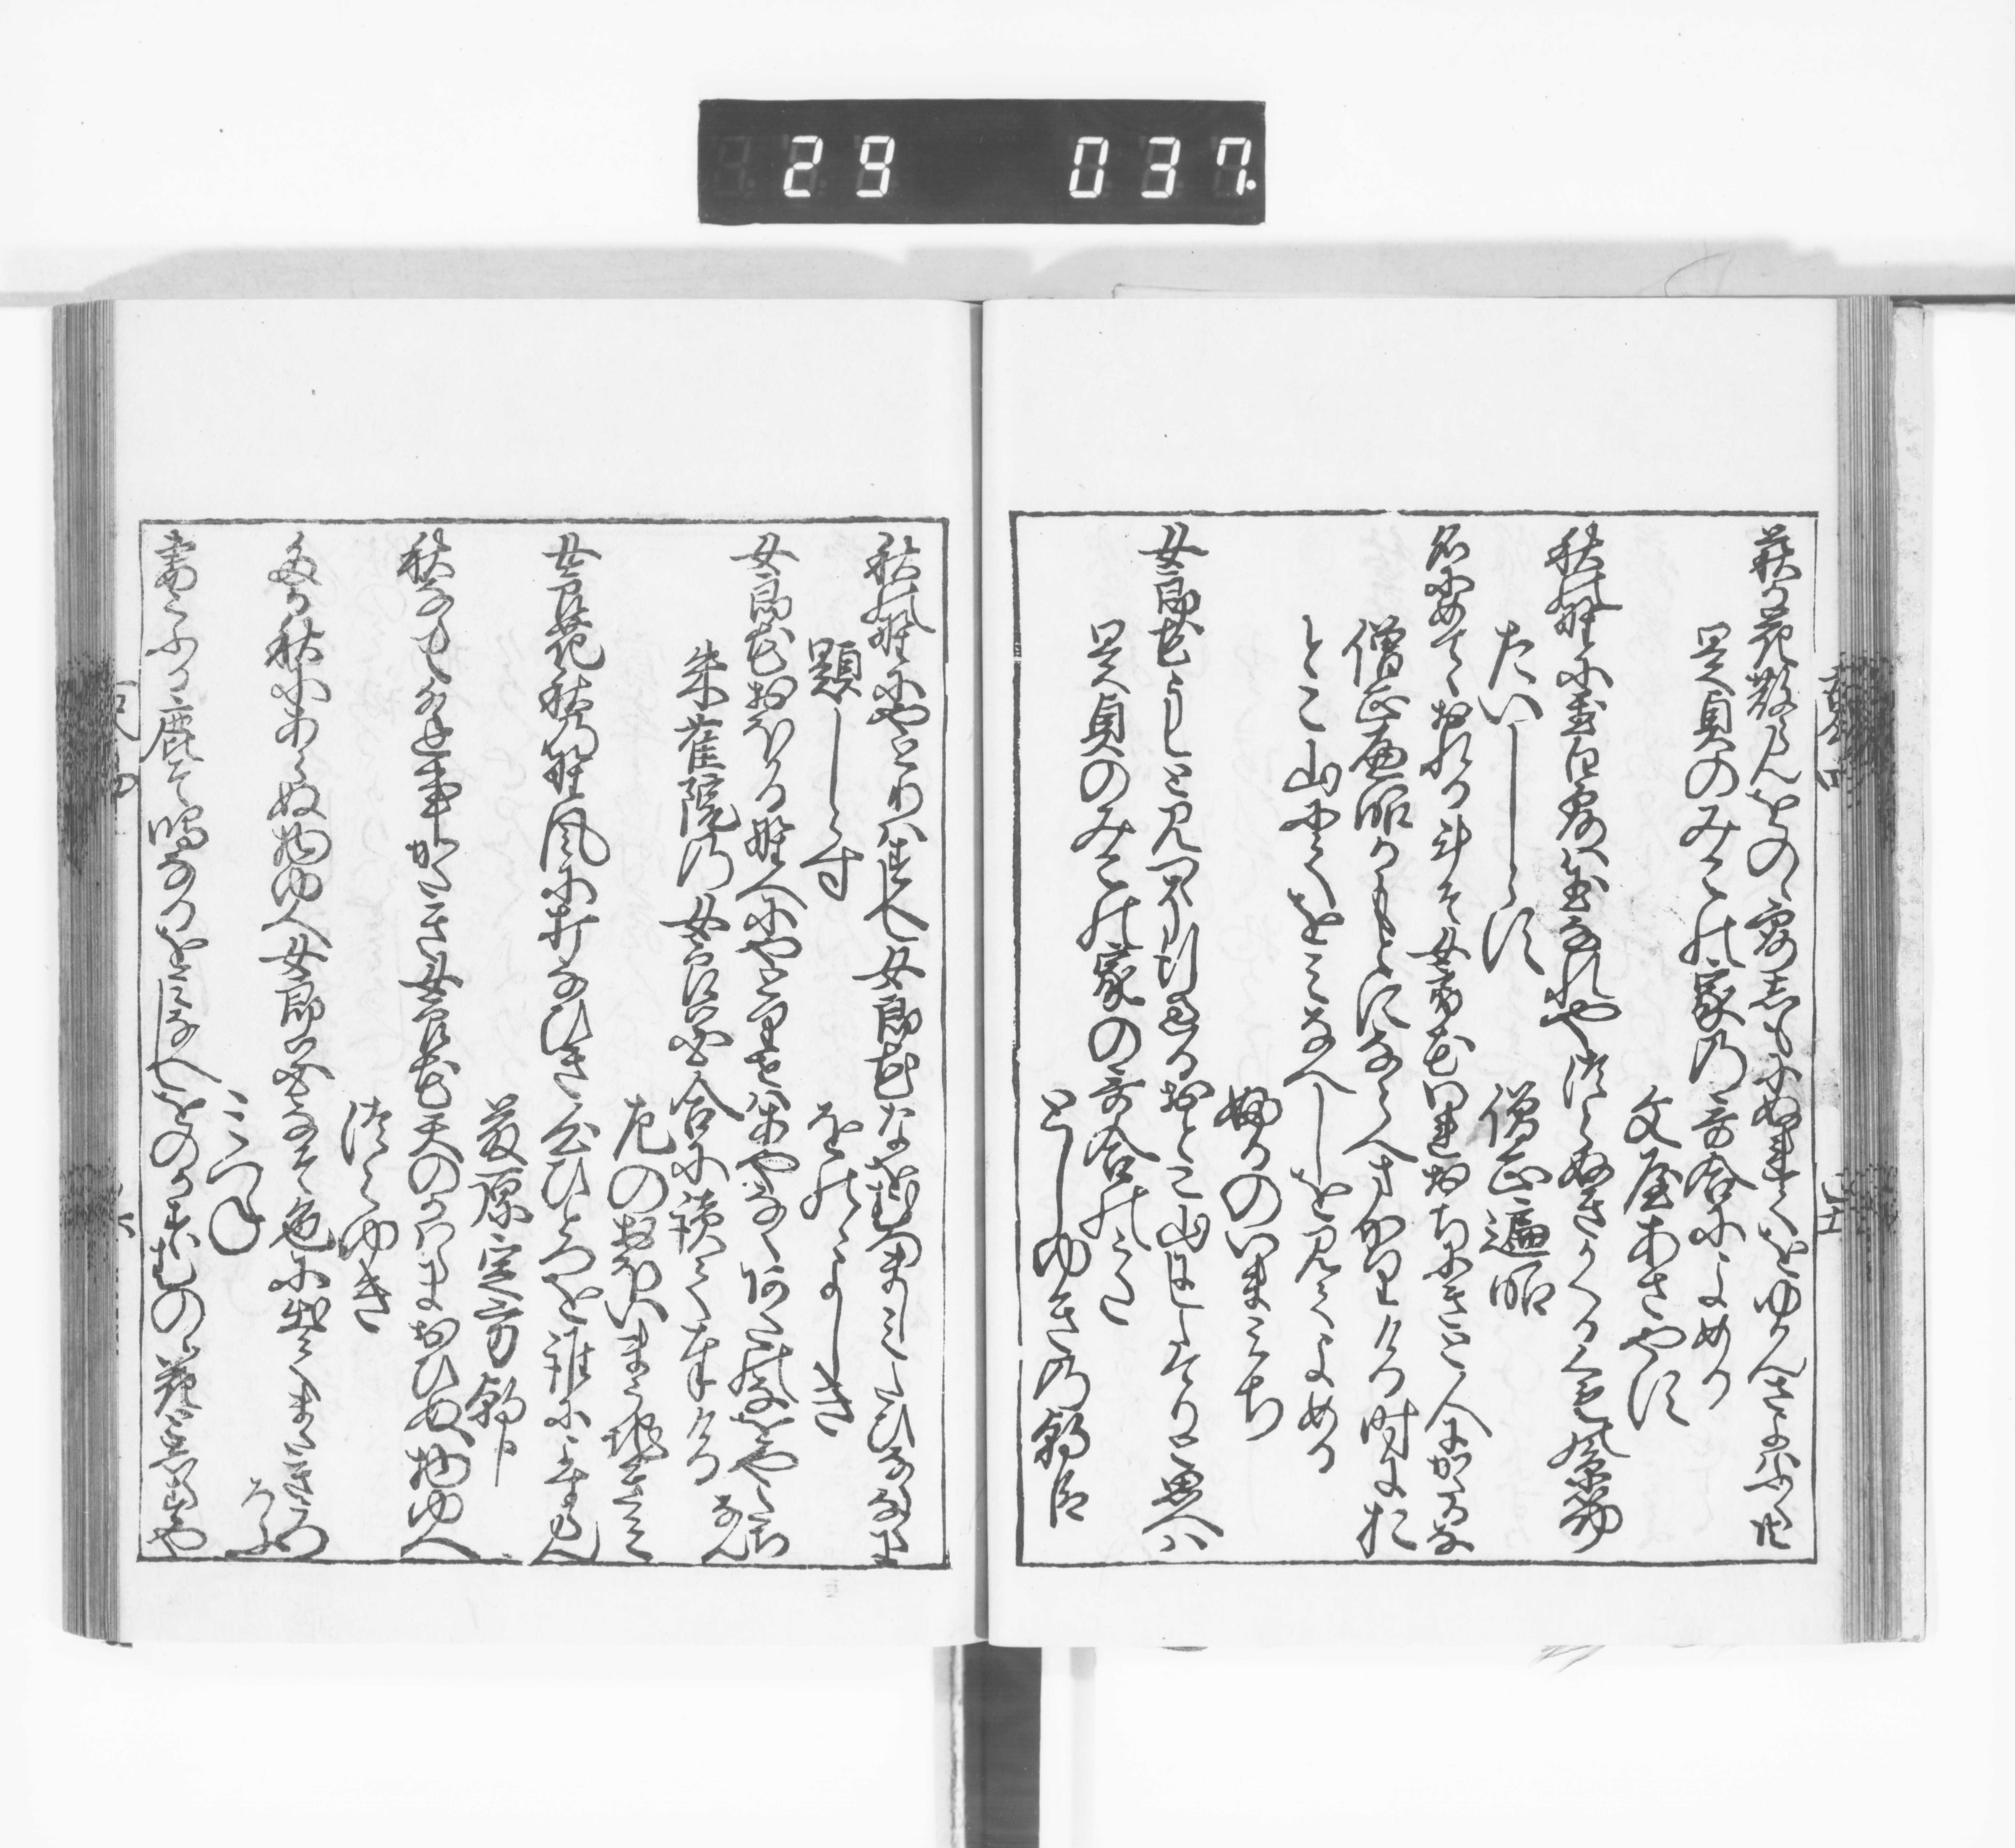 29 037
萩か花散らんをのゝ露志もにぬれてをゆかんさよはふく共
是貞のみこの家乃哥合によめる
文屋あさやす
秋の野にをく白露は玉なれやつらぬきかくるくもの糸筋
たいしらす
僧正遍昭
名にめてゝおれる斗そ女郎花われおちにきと人にかたるな
僧正遍昭かもとにならへまかりける時に於
とこ山にてをみなへしを見てよめる
ふるのいまみち
女郎花うしと見つゝそ行過るおとこ山にしたてりと思へハ
是貞のみこの家の哥合のうた
としゆきの朝臣
秋の野にやとりはすへし女郎花なをむつましみたひならなくに
題しらす
をのゝよしき
女郎花おほかる野へにやとりせはあやなくあたの名をやたちなん
朱雀院乃女郎花合に読て奉ける
左のおほいまうち君
女郎花秋の野風に打なひき心ひとつを誰によすらん
藤原定方朝臣
秋ならてあふ事かたき女郎花天のかはらにおひぬ物ゆへ
つらゆき
たか秋にあらぬ物ゆへ女郎花なそ色に出てまたきうつろふ
みつね
妻こふる鹿そ鳴なるをみなへしをのかすむのゝ花としらすや